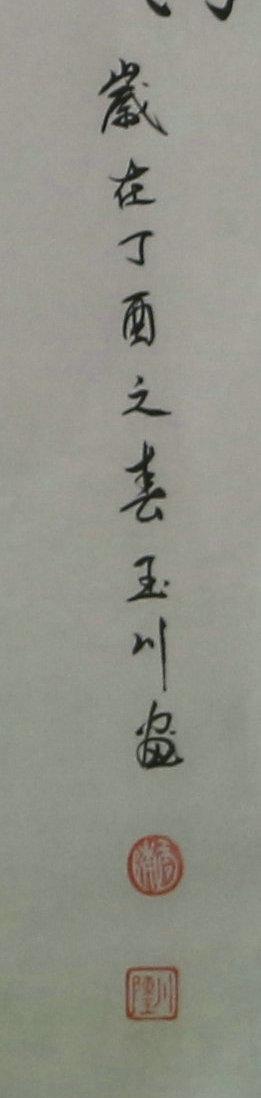 歲在丁酉之春玉川畫